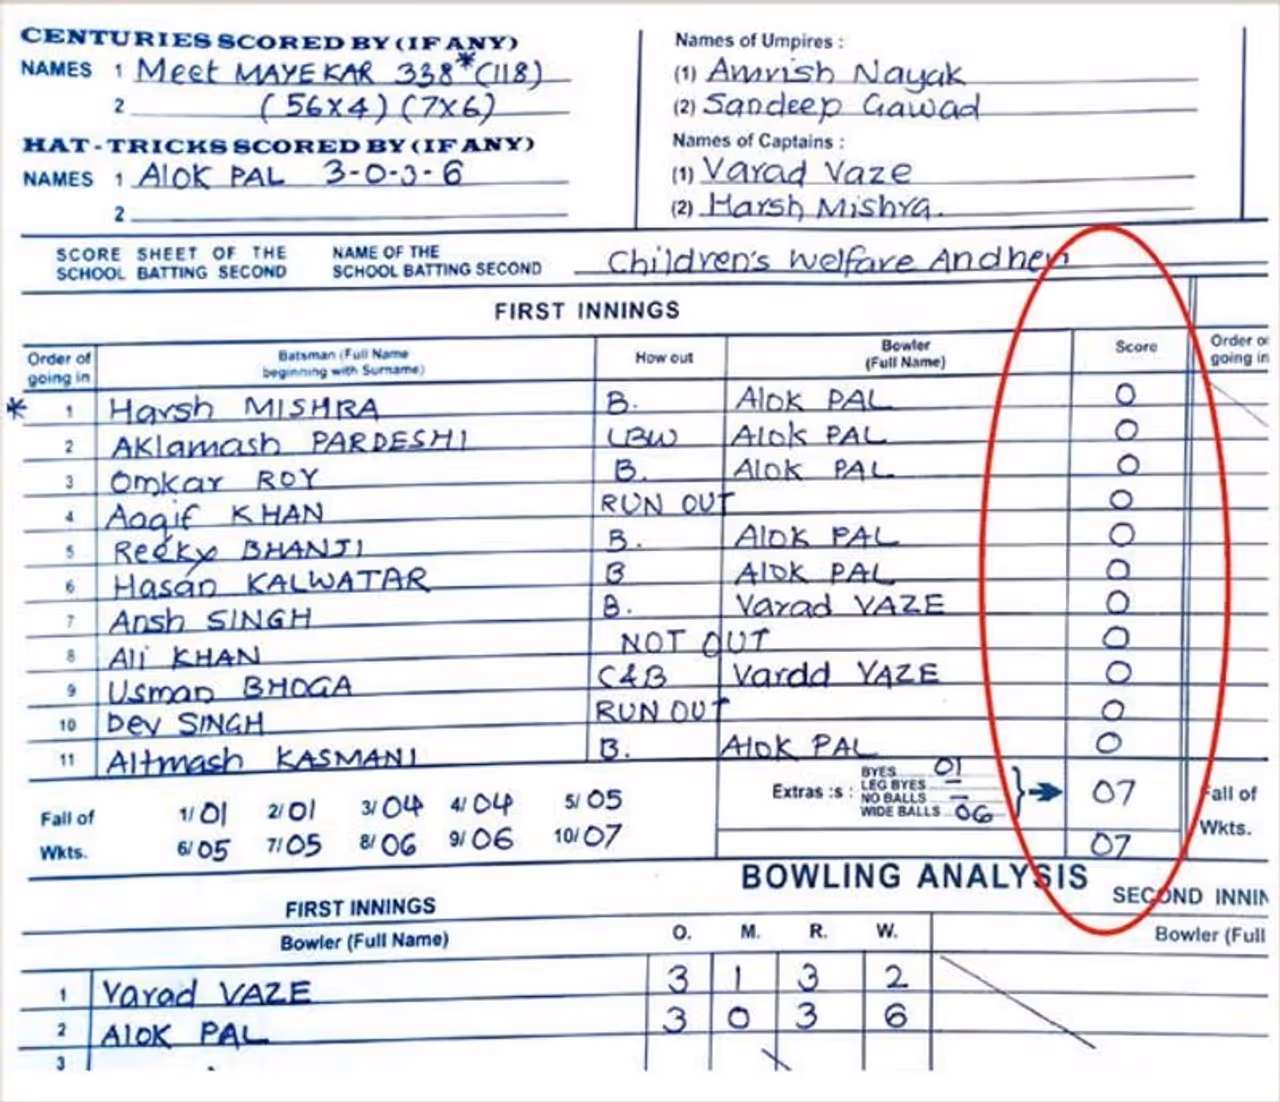 CENTURIES SCORED BY (IF ANY)
NAMES 1 Meet MAYEKAR 338* (118)
2 (56X4) (7X6)
HAT-TRICKS SCORED BY (IF ANY)
NAMES 1 Alok PAL 3-0-3-6
2
Names of Umpires :
(1) Amrish Nayak
(2) Sandeep Gawad
Names of Captains :
(1) Varad Vaze
(2) Harsh Mishra.
SCORE SHEET OF THE SCHOOL BATTING SECOND
NAME OF THE SCHOOL BATTING SECOND Children's Welfare Andheri
FIRST INNINGS
Order of going in Batsman (Full Name beginning with Surname) How out Bowler (Full Name) Score Order of going in
* 1 Harsh MISHRA B. Alok PAL 0
2 Aklamash PARDESHI LBW Alok PAL 0
3 Omkar ROY B. Alok PAL 0
4 Aaqif KHAN RUN OUT 0
5 Recky BHANJI B. Alok PAL 0
6 Hasan KALWATAR B Alok PAL 0
7 Ansh SINGH B. Varad VAZE 0
8 Ali KHAN NOT OUT 0
9 Usman BHOGA C&B Varad VAZE 0
10 Dev SINGH RUN OUT 0
11 Altmash KASMANI B. Alok PAL 0
Extras :s : BYES 01
LEG BYES –
NO BALLS –
WIDE BALLS 06
07
07
Fall of Wkts. 1/01 2/01 3/04 4/04 5/05
6/05 7/05 8/06 9/06 10/07
Fall of Wkts.
BOWLING ANALYSIS
FIRST INNINGS
SECOND INNIN
Bowler (Full Name) O. M. R. W. Bowler (Full
1 Varad VAZE 3 1 3 2
2 Alok PAL 3 0 3 6
3